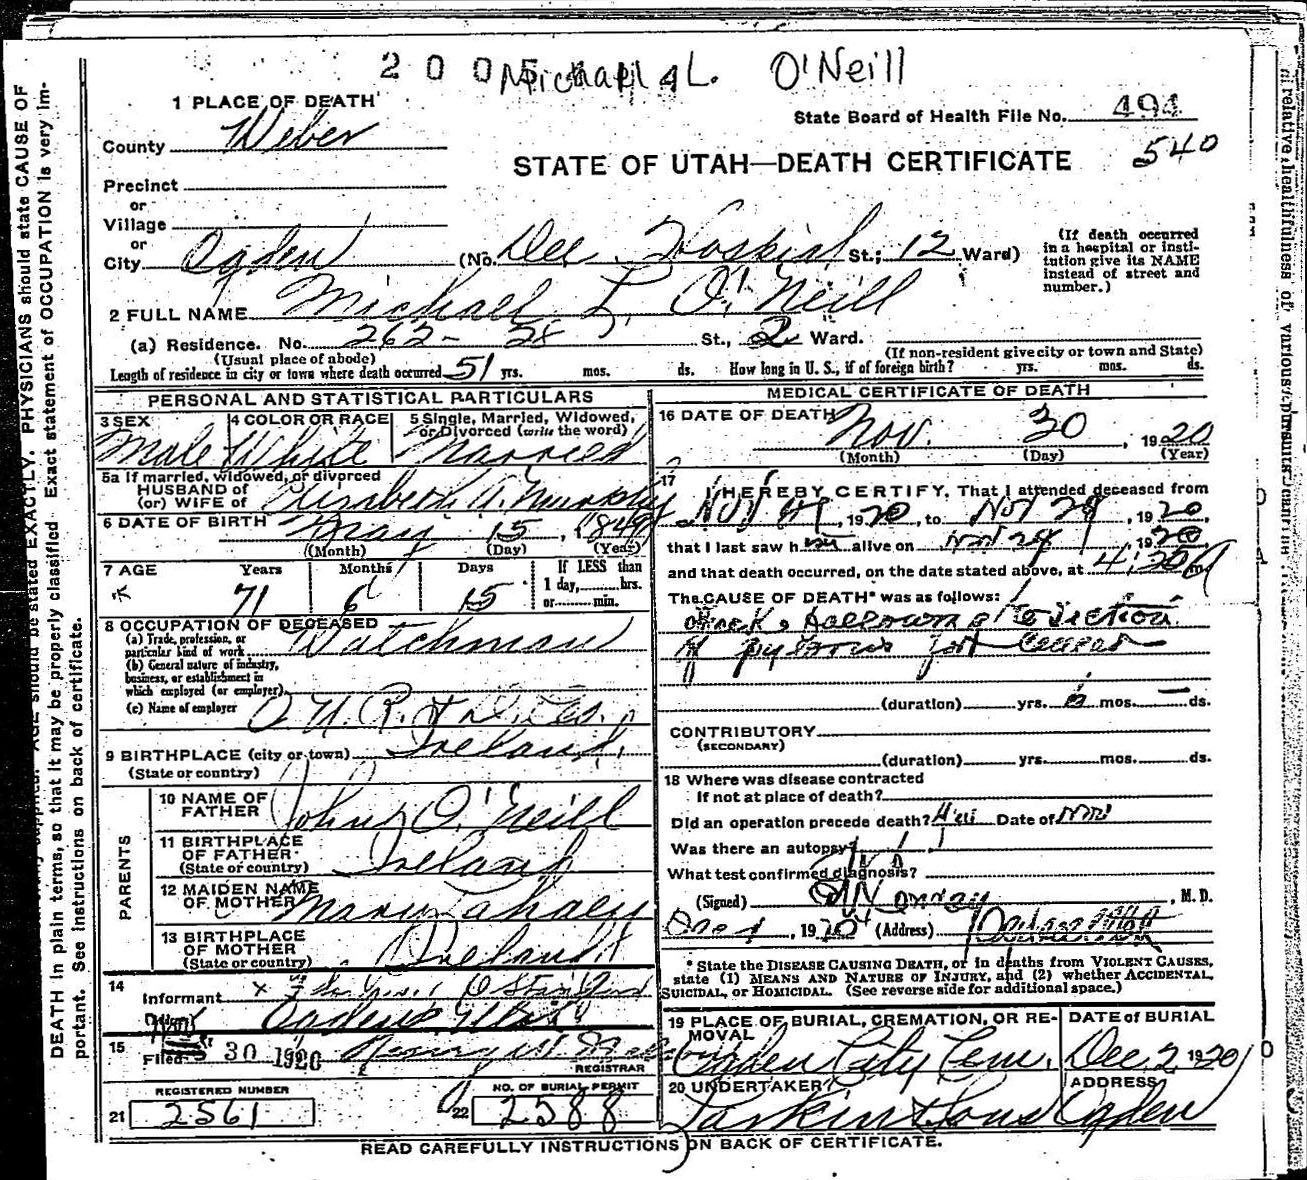 Michael L. O'Neill
1 PLACE OF DEATH
State Board of Health File No. 494
County Weber
540
STATE OF UTAH—DEATH CERTIFICATE
Precinct
or
Village
or
City Ogden (No. Dee Hospital St.; 12 Ward)
(If death occurred in a hospital or institution give its NAME instead of street and number.)
2 FULL NAME Michael L. O'Neill
(a) Residence. No. 262- 28 St., 2 Ward.
(Usual place of abode) (If non-resident give city or town and State)
Length of residence in city or town where death occurred 51 yrs. mos. ds. How long in U. S., if of foreign birth? yrs. mos. ds.
PERSONAL AND STATISTICAL PARTICULARS
3 SEX Male
4 COLOR OR RACE White
5 Single, Married, Widowed, or Divorced (write the word) Married
5a If married, widowed, or divorced
HUSBAND of
(or) WIFE of Elizabeth A. Murphy
6 DATE OF BIRTH May 15, 1849
(Month) (Day) (Year)
7 AGE Years Months Days If LESS than
71 6 15 1 day, hrs.
or min.
8 OCCUPATION OF DECEASED
(a) Trade, profession, or particular kind of work Watchman
(b) General nature of industry, business, or establishment in which employed (or employer)
(c) Name of employer O U R. & D. Co.
9 BIRTHPLACE (city or town) Ireland
(State or country)
PARENTS
10 NAME OF FATHER John O'Neill
11 BIRTHPLACE OF FATHER (State or country) Ireland
12 MAIDEN NAME OF MOTHER Mary
13 BIRTHPLACE OF MOTHER (State or country) Ireland
14 Informant
Ogden, Utah
15 Filed 30 1920
REGISTRAR
REGISTERED NUMBER
21 2561
NO. OF BURIAL PERMIT
22 2588
MEDICAL CERTIFICATE OF DEATH
16 DATE OF DEATH Nov. 30, 1920
(Month) (Day) (Year)
17 I HEREBY CERTIFY, That I attended deceased from
Nov 1920, to Nov 29, 1920,
that I last saw him alive on Nov 29 1920
and that death occurred, on the date stated above, at 4:30 a m
The CAUSE OF DEATH* was as follows:
Shock following resection
of pylorus for cancer
(duration) yrs. 6 mos. — ds.
CONTRIBUTORY
(SECONDARY)
(duration) yrs. mos. ds.
18 Where was disease contracted
If not at place of death?
Did an operation precede death? Date of
Was there an autopsy?
What test confirmed diagnosis?
(Signed) , M. D.
Dec 1, 1920 (Address)
* State the DISEASE CAUSING DEATH, or in deaths from VIOLENT CAUSES, state (1) MEANS AND NATURE OF INJURY, and (2) whether ACCIDENTAL, SUICIDAL, or HOMICIDAL. (See reverse side for additional space.)
19 PLACE OF BURIAL, CREMATION, OR REMOVAL Ogden City Cem.
DATE OF BURIAL Dec. 2 1920
20 UNDERTAKER Larkin & Sons
ADDRESS Ogden
READ CAREFULLY INSTRUCTIONS ON BACK OF CERTIFICATE.
PHYSICIANS should state CAUSE OF
DEATH in plain terms, so that it may be properly classified. Exact statement of OCCUPATION is very important. See instructions on back of certificate.